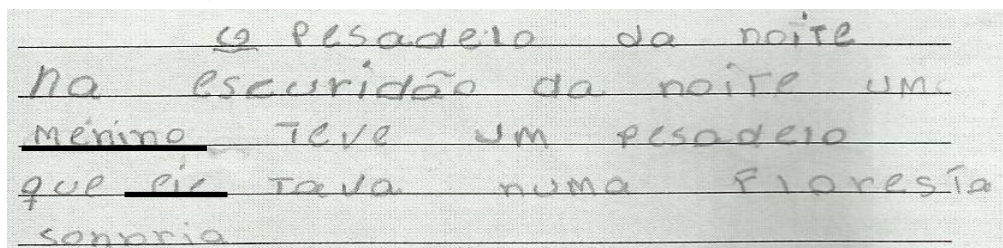 O Pesadelo da noite
na escuridão da noite um
menino teve um pesadelo
que ele tava numa floresta
sonbria